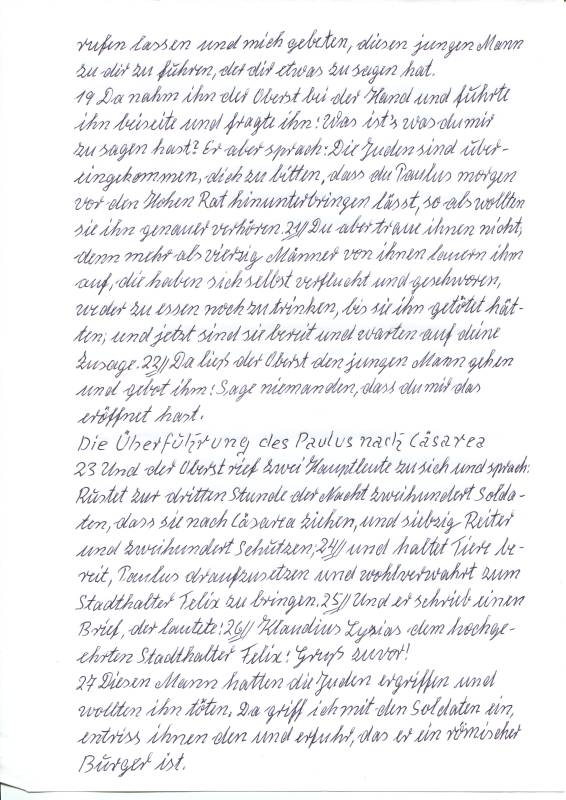 rufen lassen und mich gebeten, diesen jungen Mann
zu dir zu führen, der dir etwas zu sagen hat.
19 Da nahm ihn der Oberst bei der Hand und führte
ihn beiseite und fragte ihn: Was ist's was du mir
zu sagen hast? Er aber sprach: Die Juden sind über-
eingekommen, dich zu bitten, dass du Paulus morgen
vor den Hohen Rat hinunterbringen lässt, so als wollten
sie ihn genauer verhören. 21// Du aber traue ihnen nicht,
denn mehr als vierzig Männer von ihnen lauern ihm
auf, die haben sich selbst verflucht und geschworen,
weder zu essen noch zu trinken, bis sie ihn getötet hät-
ten; und jetzt sind sie bereit und warten auf deine
Zusage. 22// Da ließ der Oberst den jungen Mann gehen
und gebot ihm: Sage niemanden, dass du mir das
eröffnet hast.
Die Überführung des Paulus nach Cäsarea
23 Und der Oberst rief zwei Hauptleute zu sich und sprach:
Rüstet zur dritten Stunde der Nacht zweihundert Solda-
ten, dass sie nach Cäsarea ziehen, und siebzig Reiter
und zweihundert Schützen; 24// und haltet Tiere be-
reit, Paulus draufzusetzen und wohlverwahrt zum
Stadthalter Felix zu bringen. 25// Und er schrieb einen
Brief, der lautete: 26// Klaudius Lysias dem hochge-
ehrten Stadthalter Felix: Gruß zuvor!
27 Diesen Mann hatten die Juden ergriffen und
wollten ihn töten. Da griff ich mit den Soldaten ein,
entriss ihnen den und erfuhr, das er ein römischer
Bürger ist.